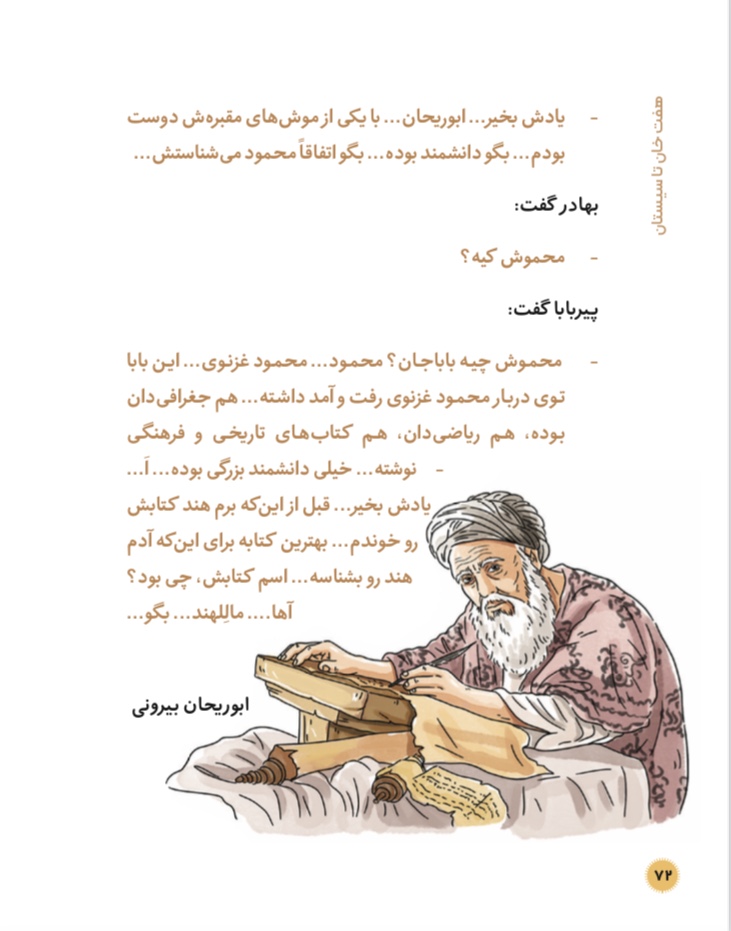 هفت خان تا سیستان
- یادش بخیر... ابوریحان... با یکی از موش‌های مقبره‌ش دوست
بودم... بگو دانشمند بوده... بگو اتفاقاً محمود می‌شناستش...
بهادر گفت:
- محموش کیه؟
پیربابا گفت:
- محموش چیه باباجان؟ محمود... محمود غزنوی... این بابا
توی دربار محمود غزنوی رفت و آمد داشته... هم جغرافی‌دان
بوده، هم ریاضی‌دان، هم کتاب‌های تاریخی و فرهنگی
- نوشته... خیلی دانشمند بزرگی بوده... اَ...
یادش بخیر... قبل از این‌که برم هند کتابش
رو خوندم... بهترین کتابه برای این‌که آدم
هند رو بشناسه... اسم کتابش، چی بود؟
آها.... مالِلهند... بگو...
ابوریحان بیرونی
۷۲